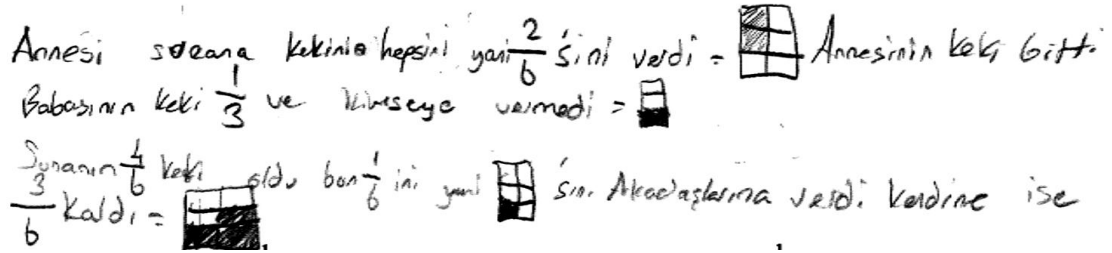 Annesi sucana kekinin hepsini yani 2/6 sini verdi = Annesinin keki bitti.
Babasının keki 1/3 ve kimseye vermedi =
Sunanın 4/6 keki oldu bən 1/6 ini yani sını Akadaşlarına verdi. Kendine ise
3/6 kaldı =